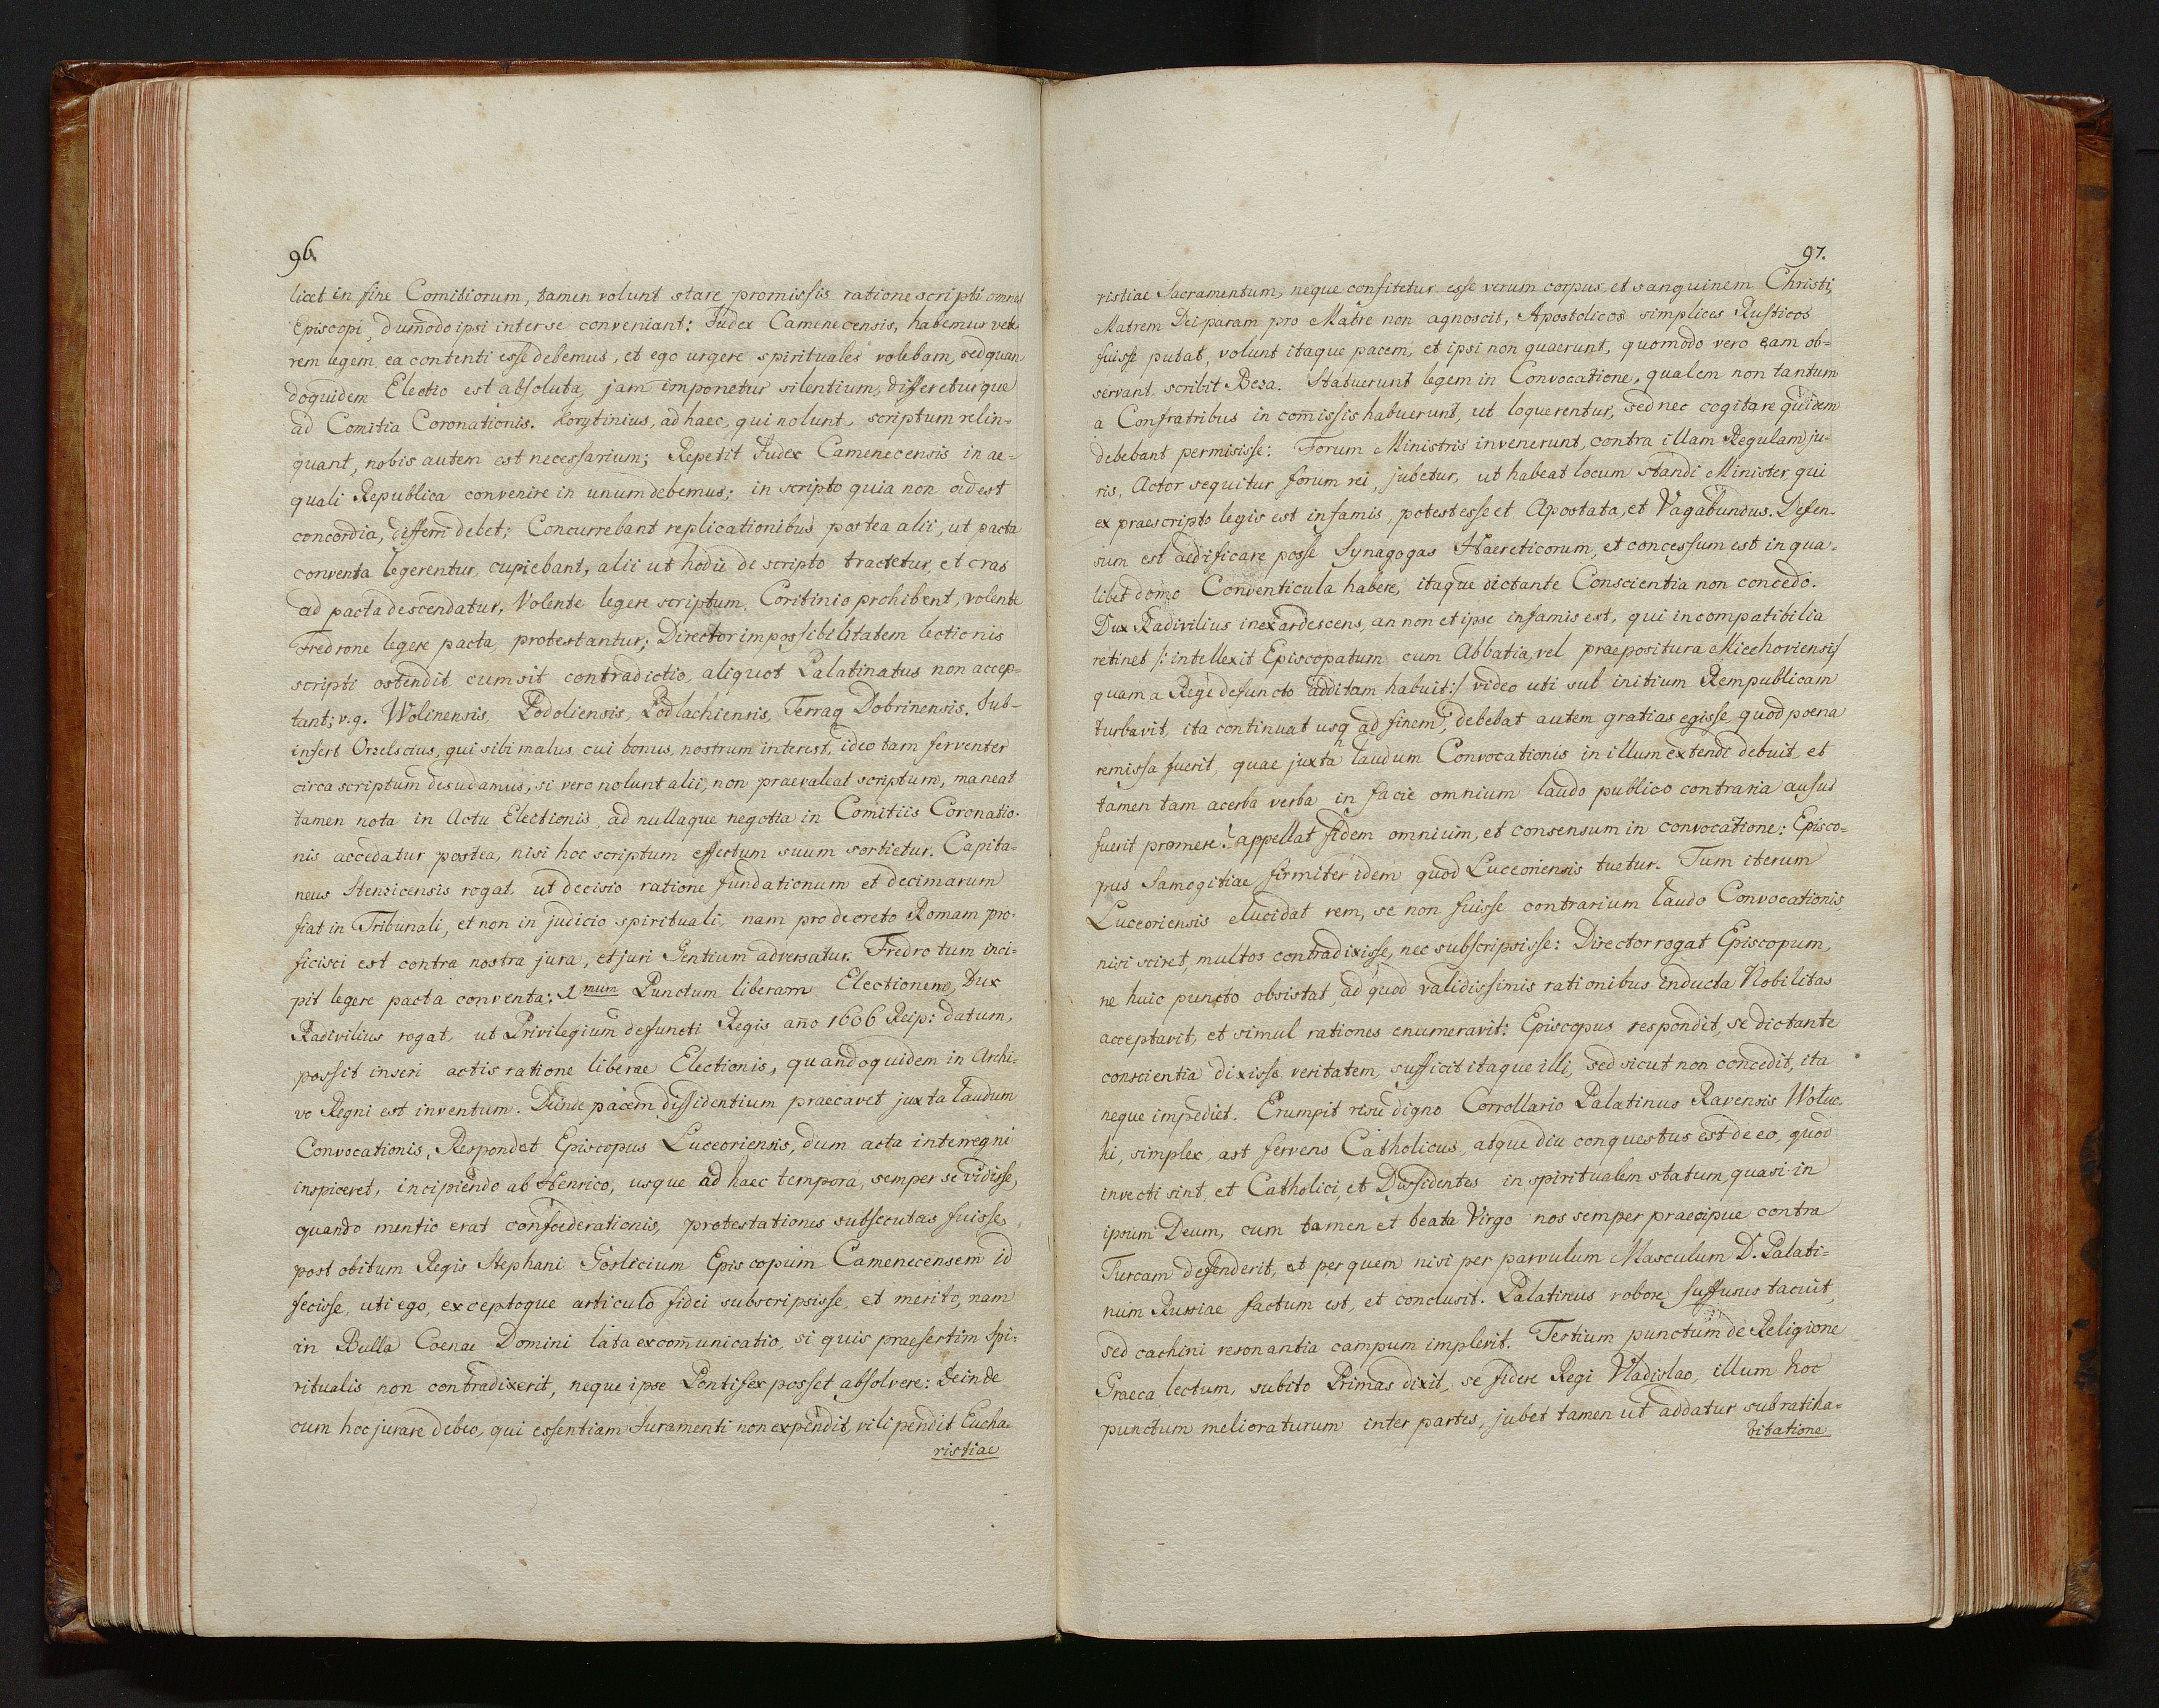 96.
licet in fine Comitiorum, tamen volunt stare promissis ratione scripti omnes
Episcopi, dum̄odo ipsi inter se conveniant: Judex Camenecensis, habemus vete-
rem legem, ea contenti esse debemus, et ego urgere spirituales volebam, sed quan
doquidem Electio est absoluta, jam imponetur silentium, differeturque
ad Comitia Coronationis. Korytinius, ad haec, qui nolunt, scriptum relin-
quant, nobis autem est necessarium; Repetit Judex Camenecensis in ae-
quali Republica convenire in unum debemus; in scripto quia non adest
concordia, differri debet; Concurrebant replicationibus postea alii, ut pacta
conventa legerentur, cupiebant, alii ut hodie de scripto tractetur, et cras
ad pacta descendatur, Volente legere scriptum Coritinio prohibent, volente
Fredrone legere pacta, protestantur; Director impossibilitatem lectionis
scripti ostendit cum sit contradictio, aliquot Palatinatus non accep-
tant; v.g. Wolinensis, Podoliensis, Podlachiensis, Terraq Dobrinensis. Sub-
infert Orzelscius, qui sibi malus cui bonus, nostrum interest, ideo tam ferventer
circa scriptum desudamus, si vero nolunt alii, non praevaleat scriptum, maneat
tamen nota in Actu Electionis, ad nullaque negotia in Comitiis Coronatio-
nis accedatur postea, nisi hoc scriptum effectum suum sortietur. Capita-
neus Stensicensis rogat ut decisio ratione fundationum et decimarum
fiat in Tribunali, et non in judicio spirituali, nam pro decreto Romam pro-
ficisci est contra nostra jura, et juri Gentium adversatur. Fredro tum inci-
pit legere pacta conventa: 1mum Punctum liberam Electionem, Dux
Radivilius rogat, ut Privilegium defuncti Regis año 1606 Reip: datum,
possit inseri actis ratione liberae Electionis, quandoquidem in Archi-
vo Regni est inventum. Deinde pacem dissidentium praecavet juxta laudum
Convocationis, Respondet Episcopus Luceoriensis, dum acta interregni
inspiceret, incipiendo ab Henrico, usque ad haec tempora, semper se vidisse,
quando mentio erat confoederationis, protestationes subsecutas fuisse,
post obitum Regis Stephani Goslicium Episcopum Camenecensem id
fecisse, uti ego, exceptoque articulo fidei subscripsisse, et merito, nam
in Bulla Coenae Domini lata excom̄unicatio, si quis praesertim Spi-
ritualis non contradixerit, neque ipse Pontifex posset absolvere: Deinde
cum hoc jurare debeo, qui essentiam Juramenti non expendit, vilipendit Eucha-
ristiae
97.
ristiae Sacramentum, neque confitetur esse verum corpus, et sanguinem Christi,
Matrem Deiparam pro Matre non agnoscit, Apostolicos simplices Rusticos
fuisse putat, volunt itaque pacem, et ipsi non quaerunt, quomodo vero eam ob-
servant, scribit Beza. Statuerunt legem in Convocatione, qualem non tantum
a Confratribus in com̄issis habuerunt, ut loquerentur, sed nec cogitare quidem
debebant permisisse: Forum Ministris invenerunt, contra illam Regulam ju-
ris, Actor sequitur forum rei, jubetur, ut habeat locum standi Minister, qui
ex praescripto legis est infamis, potest esse et Apostata, et Vagabundus. Defen-
sum est aedificare posse Synagogas Haereticorum, et concessum est in qua-
libet domo Conventicula habere, itaque dictante Conscientia non concedo.
Dux Radivilius inexardescens, an non et ipse infamis est, qui incompatibilia
retinet /: intellexit Episcopatum cum Abbatia, vel praepositura Miechoviensi/
quam a Rege defuncto additam habuit:/ video uti sub initium Rempublicam
turbavit, ita continuat usq ad finem, debebat autem gratias egisse, quod poena
remissa fuerit, quae juxta laudum Convocationis in illum extendi debuit, et
tamen tam acerba verba in facie omnium laudo publico contraria ausus
fuerit promere? appellat fidem omnium, et consensum in convocatione: Episco-
pus Samogitiae firmiter idem quod Luceoriensis tuetur. Tum iterum
Luceoriensis elucidat rem, se non fuisse contrarium laudo Convocationis,
nisi sciret, multos contradixisse, nec subscripsisse: Director rogat Episcopum,
ne huic puncto obsistat, ad quod validissimis rationibus inducta Nobilitas
acceptavit, et simul rationes enumeravit: Episcopus respondit, se dictante
conscientia dixisse veritatem, sufficit itaque illi, sed sicut non concedit, ita
neque impediet. Erumpit risu digno Corrollario Palatinus Ravensis Woluc-
ki, simplex, ast fervens Catholicus, atque diu conquestus est de eo, quod
invecti sint, et Catholici, et Dissidentes in spiritualem statum, quasi in
ipsum Deum, cum tamen et beata Virgo nos semper praecipue contra
Turcam defenderit, et per quem nisi per parvulum Masculum D. Palati-
num Russiae factum est, et conclusit. Palatinus robore suffusus tacuit,
sed cachini resonantia campum implevit. Tertium punctum de Religione
Graeca lectum, subito Primas dixit, se fidere Regi Vladislao, illum hoc
punctum melioraturum inter partes, jubet tamen ut addatur sub ratiha-
bitatione